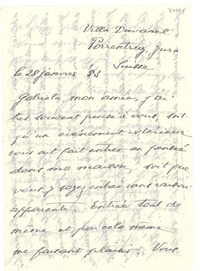 Villa Duvanel
Porrentruy Jura
Suisse
le 28 janvier 53
Gabriela mon amie, j'ai
très souvent pensé à vous, soit
qu'un événement extérieur
vous ait fait entrer en pensée
dans ma maison, soit que
vous y soyez entrée sans raison
apparente. Entrée tout de
même et par cela même
me faisant plaisir. Vous